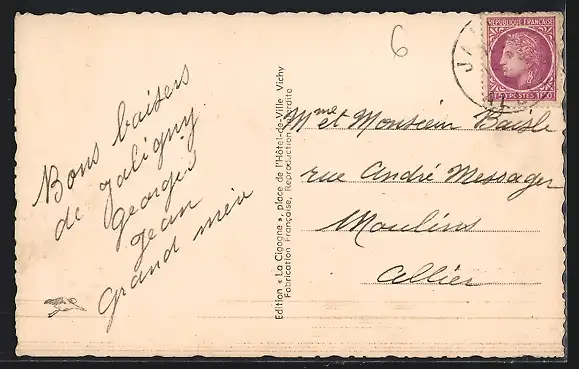 6
REPUBLIQUE FRANÇAISE
POSTES 1F50
JA
Bons baisers
de Jaligny
Georges
Jean
Grand mère
Edition « La Cigogne », place de l'Hôtel-de-Ville, Vichy
Fabrication Française, Reproduction interdite
Mme et Monsieur Baisle
rue André Messager
Moulins
Allier